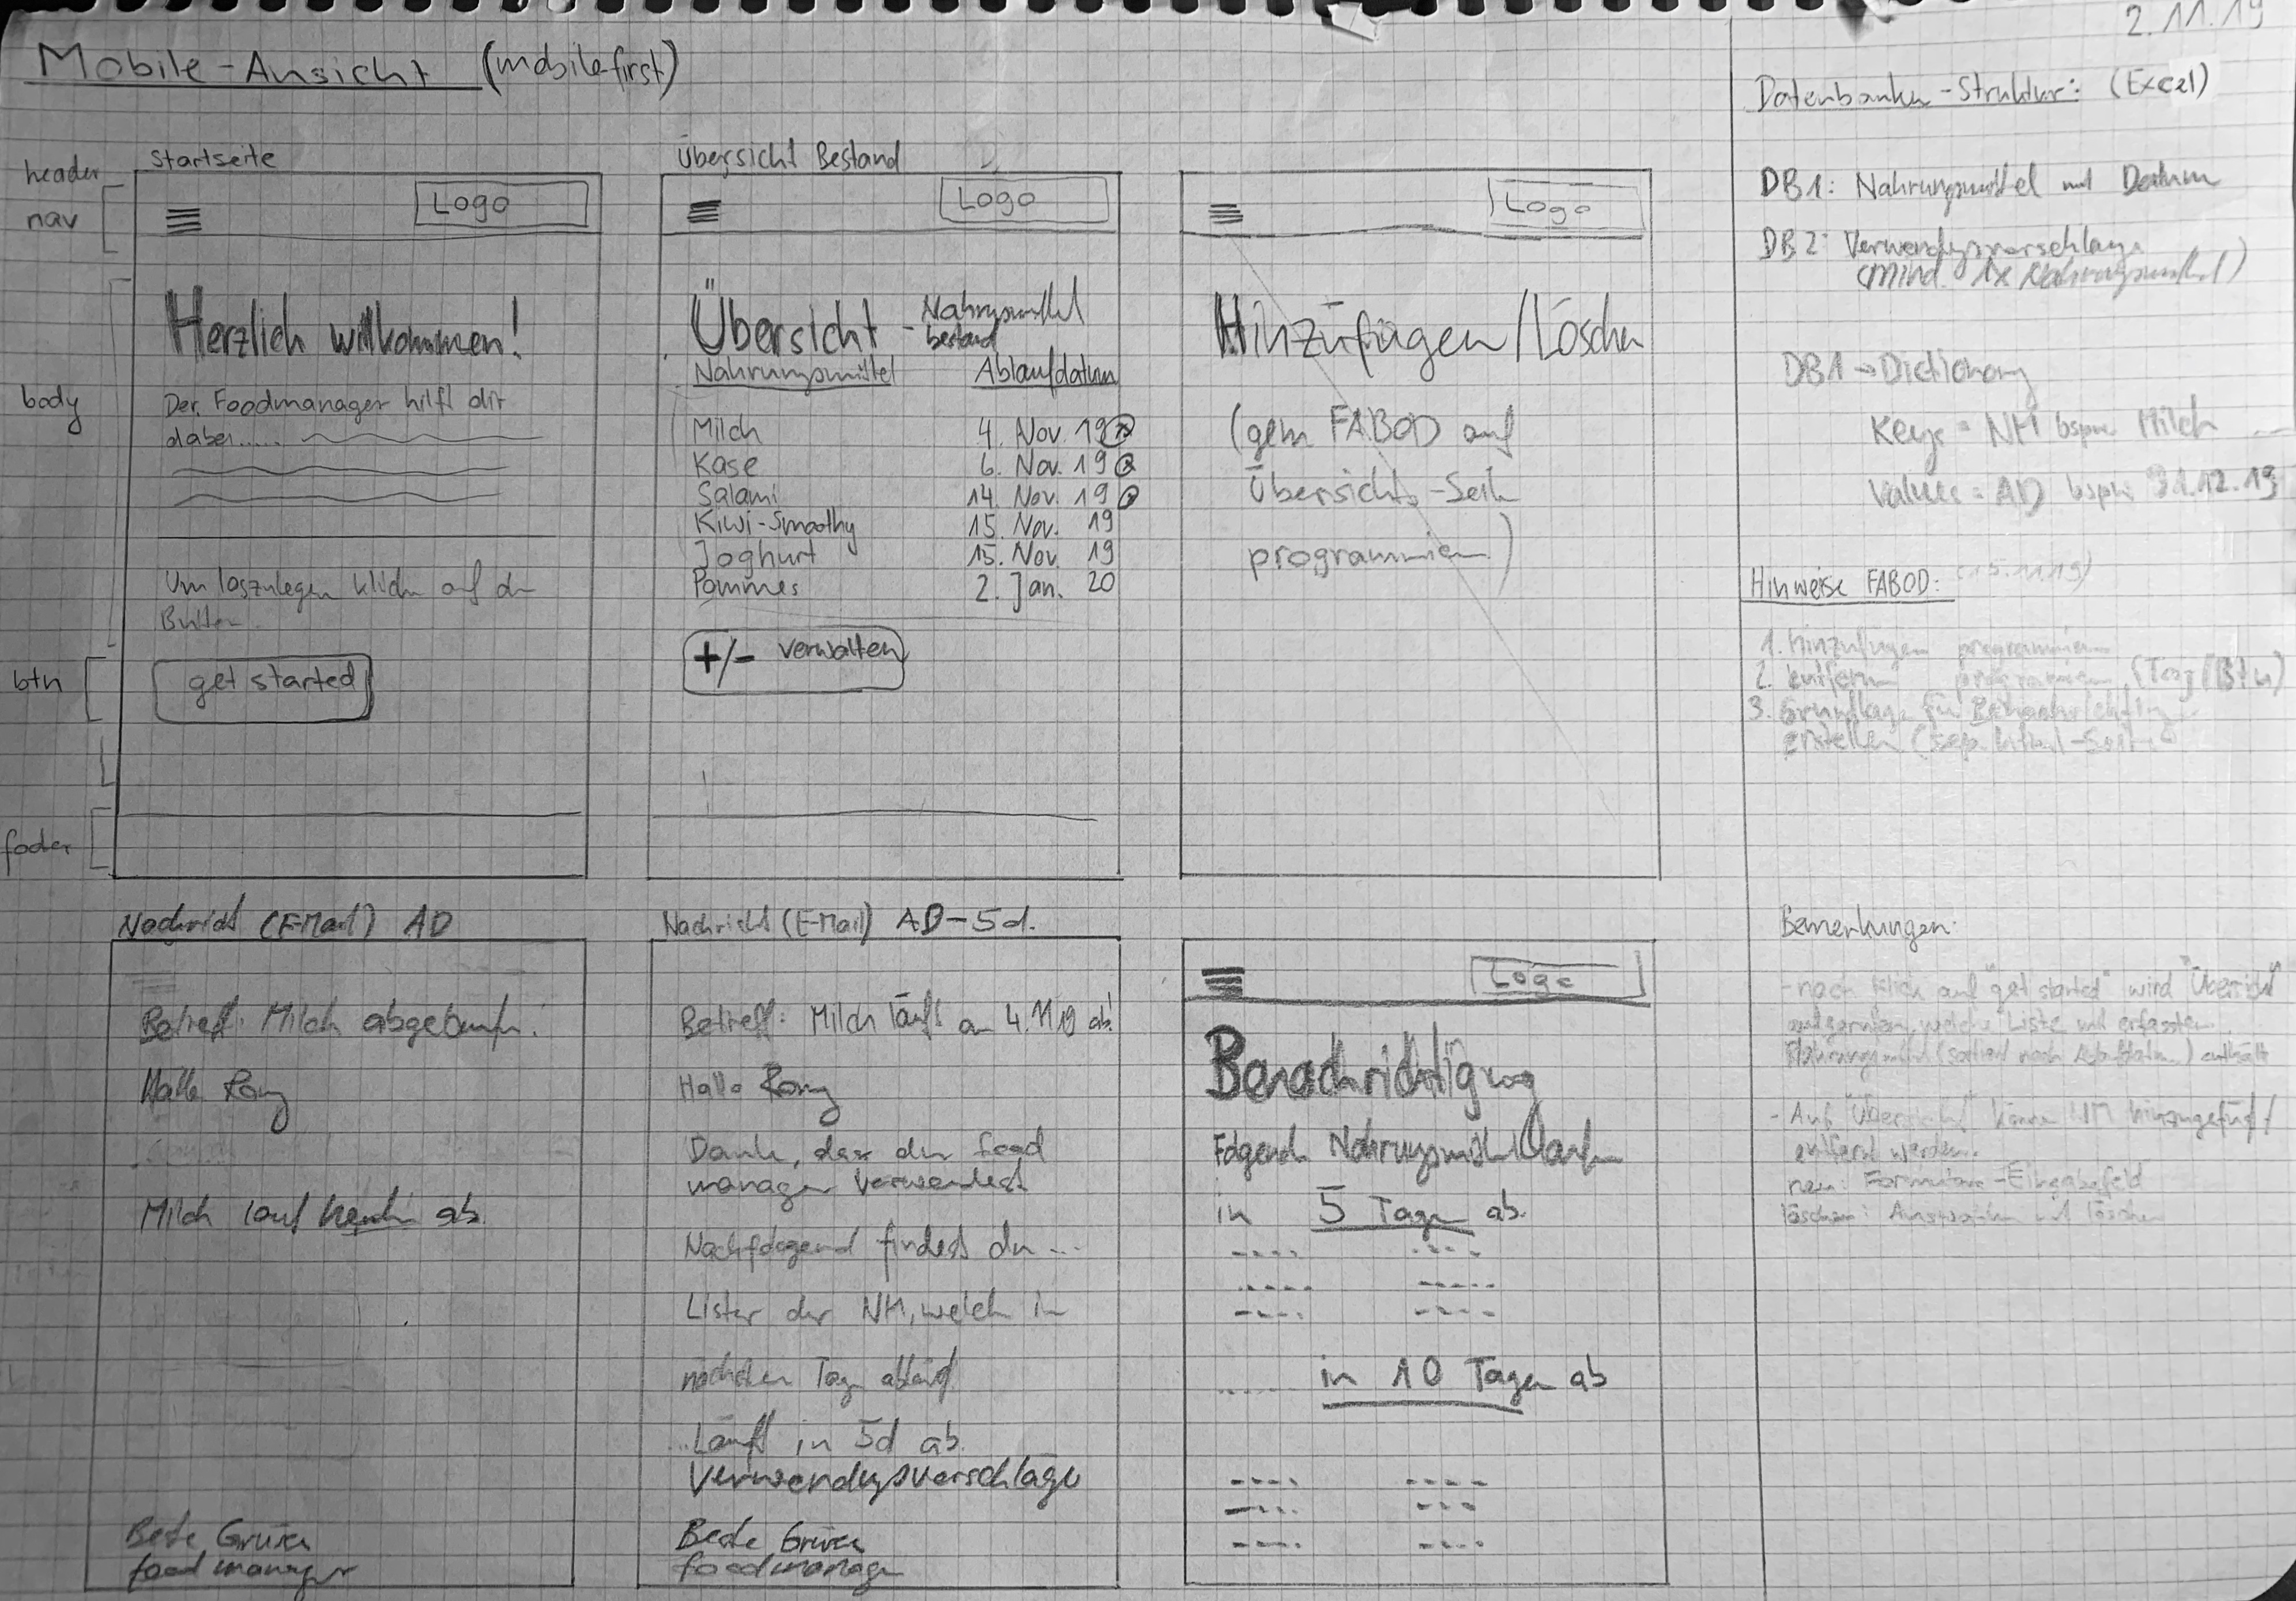 2.11.19
Mobile-Ansicht (mobilefirst)
header
nav
body
btn
footer
Startseite
Logo
Herzlich willkommen!
Der Foodmanager hilft dir
dabei.....
Um loszulegen klicke auf den
Button
get started
Übersicht Bestand
Logo
Übersicht - Nahrungsmittel
bestand
Nahrungsmittel Ablaufdatum
Milch 4. Nov. 19
Käse 6. Nov. 19
Salami 14. Nov. 19
Kiwi-Smoothy 15. Nov. 19
Joghurt 15. Nov. 19
Pommes 2. Jan. 20
+/- verwalten
Logo
Hinzufügen/Löschen
(gem FABOD auf
Übersichts-Seite
programmieren)
Nachricht (E-Mail) AD
Betreff: Milch abgelaufen!
Hallo
Milch lauf heute ab.
Beste Grüsse
foodmanager
Nachricht (E-Mail) AD-5d.
Betreff: Milch läuft am 4.11.19 ab!
Hallo
Danke, dass du food
manager verwendest
Nachfolgend findest du ...
Liste der NM, welche in
nächsten Tagen abläuft
...Läuft in 5d ab.
Verwendungsvorschläge
Beste Grüsse
foodmanager
Logo
Benachrichtigung
Folgende Nahrungsmittel laufen
in 5 Tagen ab.
in 10 Tagen ab
Datenbanken-Struktur: (Excel)
DB1: Nahrungsmittel mit Datum
DB2: Verwendungsvorschläge
(mind. 1x Nahrungsmittel)
DB1 → Dictionary
Keys = NM bspw. Milch
Values = AD bspw. 31.12.19
Hinweise FABOD: (15.11.19)
1. Hinzufügen programmieren
2. entfernen programmieren (Tag/Btn)
3. Grundlage für Benachrichtigung
erstellen (sep. html-Seite)
Bemerkungen:
- nach Klick auf "get started" wird "Übersicht"
aufgerufen, welche Liste mit erfassten
Nahrungsmittel (sortiert nach Ablaufdatum) enthält
- Auf "Übersicht" können NM hinzugefügt/
entfernt werden.
neu: Formular-Eingabefeld
löschen: Auswählen und löschen